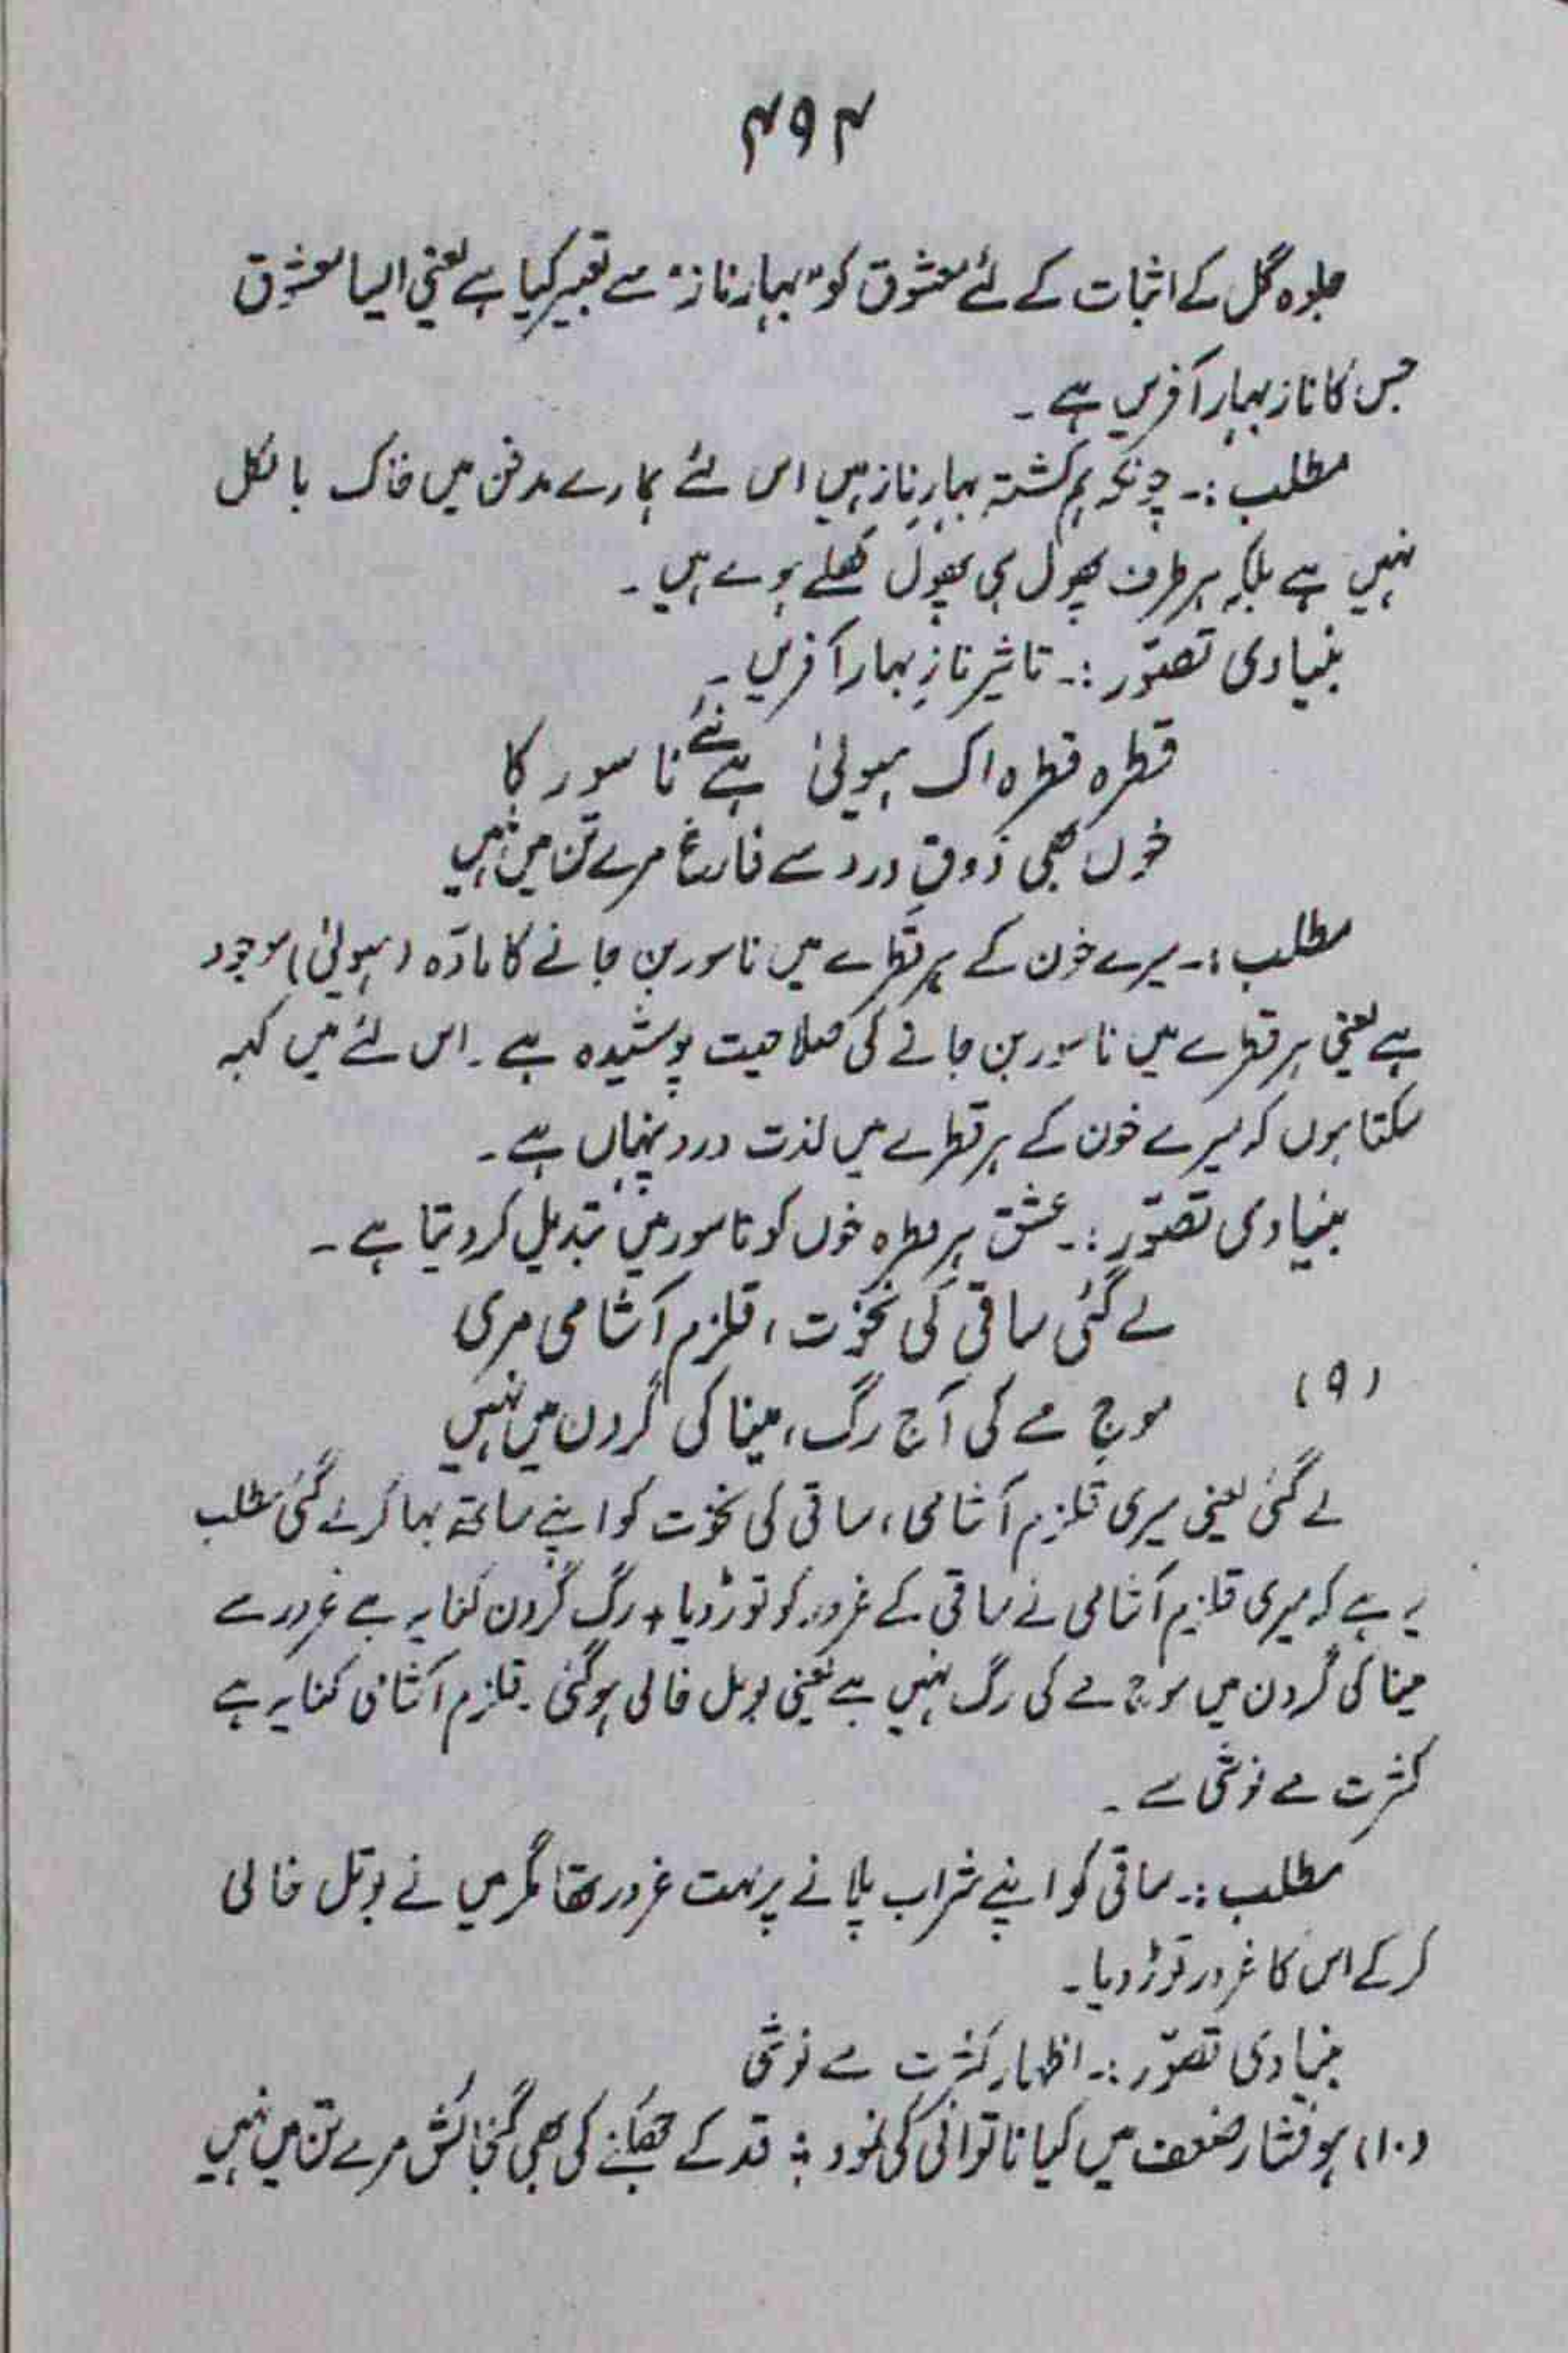 ۴۹۴
جلوہ گل کے اثبات کے لئے معشوق کو "بہارِ ناز" سے تعبیر کیا ہے یعنی ایسا معشوق
جس کا ناز بہار آفریں ہے ۔
مطلب :۔ چونکہ ہم کشتہ بہارِ ناز ہیں اس لئے ہمارے مدفن میں خاک بالکل
نہیں ہے بلکہ ہر طرف پھول ہی پھول کھلے ہوے ہیں ۔
بنیادی تصوّر :۔ تاثیر نازِ بہار آفریں ۔
قطرہ قطرہ اک ہیولیٰ ہے نئے ناسور کا
خوں بھی ذوقِ درد سے فارغ مرے تن میں نہیں
مطلب :۔ میرے خون کے ہر قطرے میں ناسور بن جانے کا مادّہ (ہیولیٰ) موجود
ہے یعنی ہر قطرے میں ناسور بن جانے کی صلاحیت پوشیدہ ہے ۔ اس لئے میں کہہ
سکتا ہوں کہ میرے خون کے ہر قطرے میں لذت درد پنہاں ہے ۔
بنیادی تصوّر :۔ عشق ہر قطرہ خوں کو ناسور میں تبدیل کر دیتا ہے ۔
لے گئی ساقی کی نخوت ، قلزم آشامی مری
(۹) موجِ مے کی آج رگ ، مینا کی گردن میں نہیں
لے گئی یعنی میری قلزم آشامی ، ساقی کی نخوت کو اپنے ساتھ بہا کر لے گئی مطلب
یہ ہے کہ میری قلزم آشامی نے ساقی کے غرور کو توڑ دیا ، رگ گردن کنایہ ہے غرور سے
مینا کی گردن میں موج مے کی رگ نہیں ہے یعنی بوتل خالی ہو گئی ۔ قلزم آشامی کنایہ ہے
کثرت مے نوشی سے ۔
مطلب :۔ ساقی کو اپنے شراب پلانے پر بہت غرور تھا مگر میں نے بوتل خالی
کر کے اس کا غرور توڑ دیا ۔
بنیادی تصوّر :۔ اظہار کثرت مے نوشی
(۱۰) ہو فشارِ ضعف میں کیا ناتوانی کی نمود ؛ قد کے جھکنے کی بھی گنجائش مرے تن میں نہیں